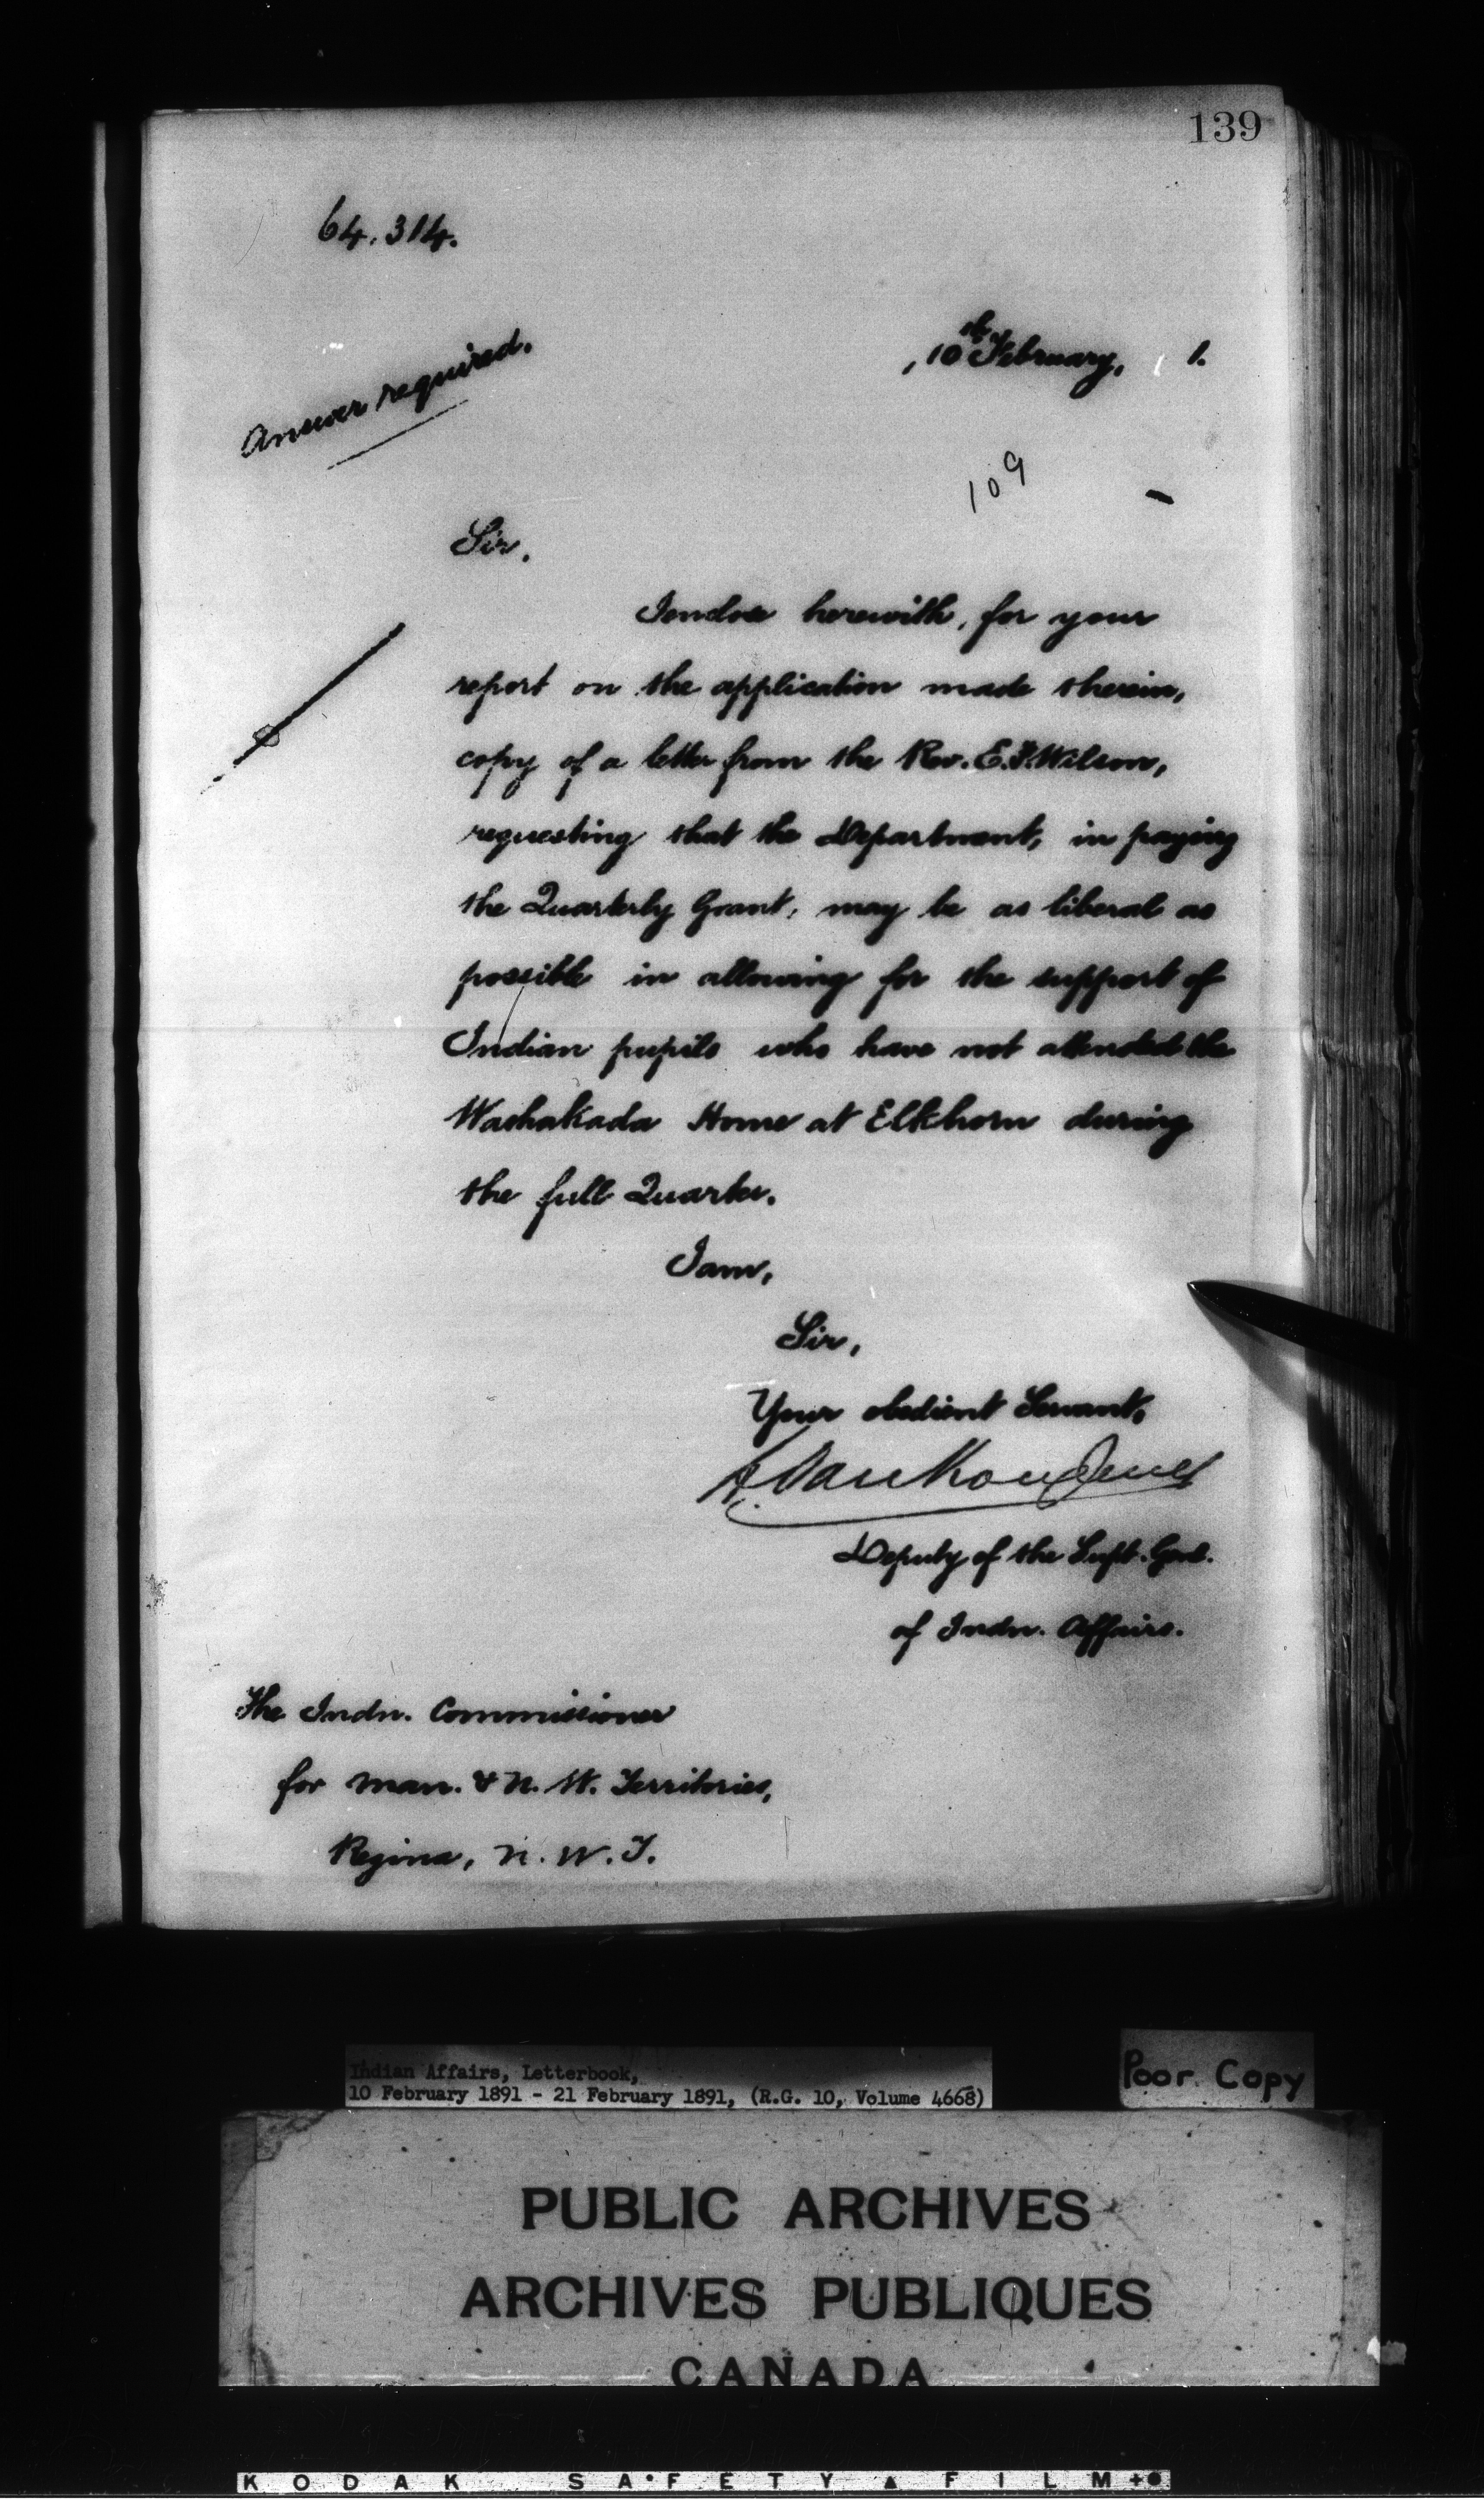 139
64.314.
, 10th February, 1.
Answer required.
109
Sir,
I enclose herewith, for your
report on the application made therein,
copy of a letter from the Rev. E.F. Wilson,
requesting that the Department, in paying
the Quarterly Grant, may be as liberal as
possible in allowing for the support of
Indian pupils who have not attended the
Washakada Home at Elkhorn during
the full Quarter.
I am,
Sir,
Your obedient Servant,
L. Vankoughnet
Deputy of the Supt. Genl.
of Indn. Affairs.
The Indn. Commissioner
for Man. & N. W. Territories,
Regina, N. W. T.
Indian Affairs, Letterbook,
10 February 1891 - 21 February 1891, (R.G. 10, Volume 4668)
Poor Copy
PUBLIC ARCHIVES
ARCHIVES PUBLIQUES
CANADA
KODAK SAFETY ▲ FILM +●